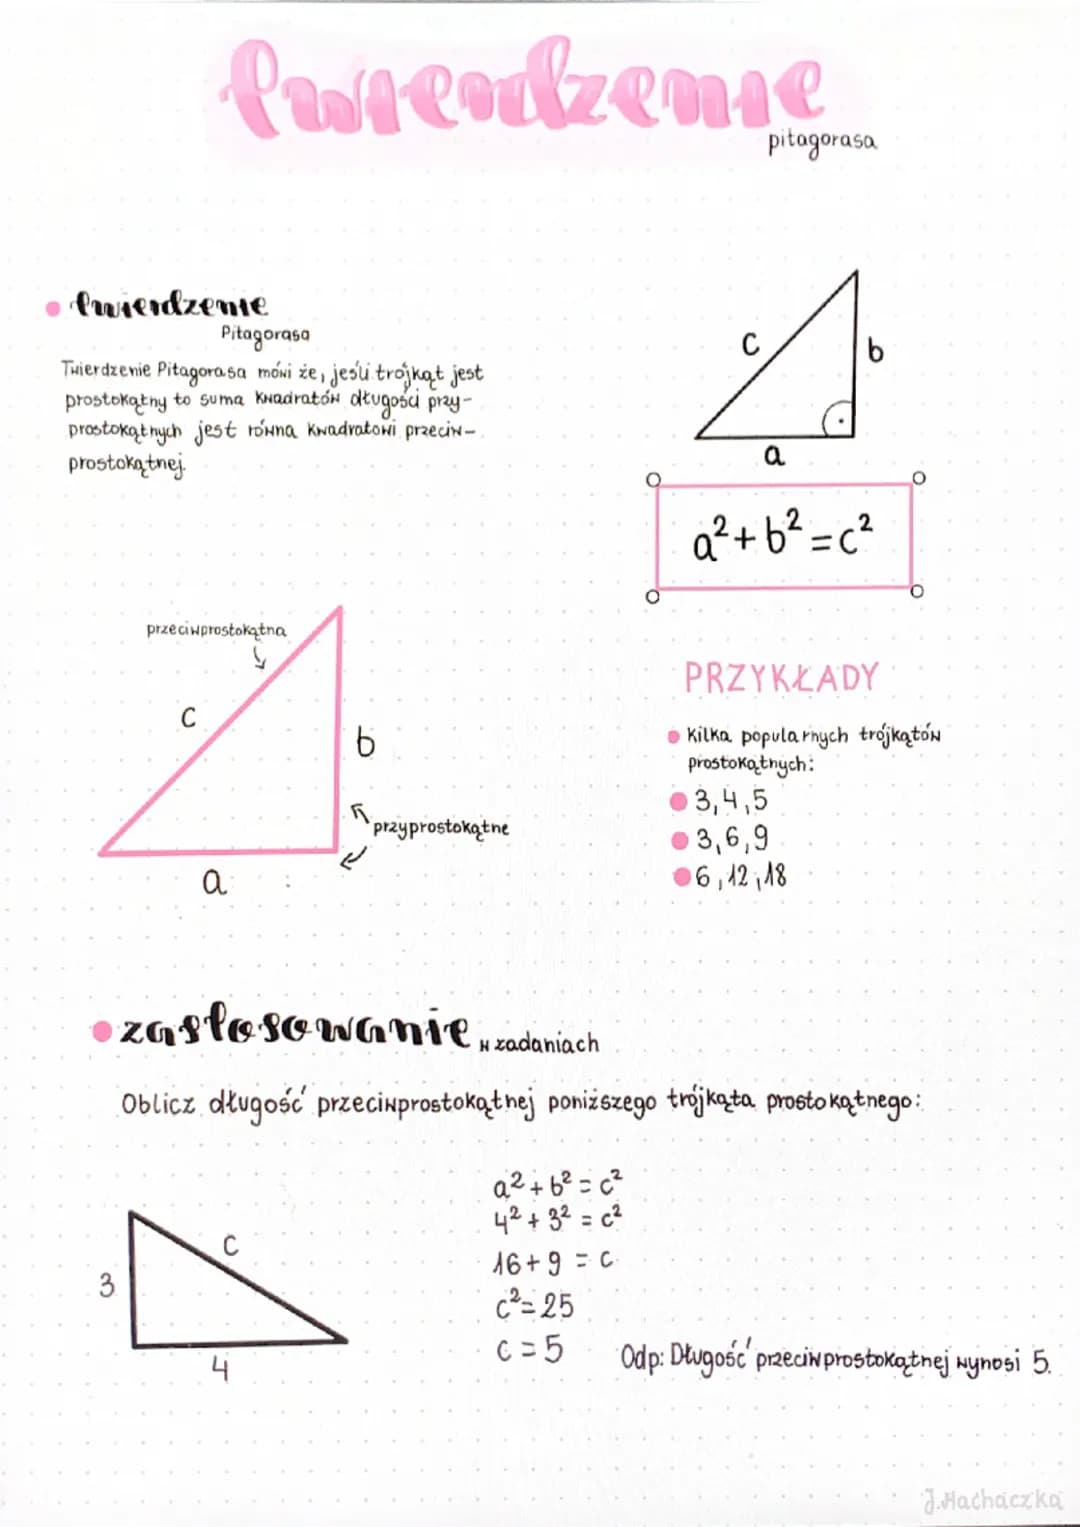 twierdzenie
pitagorasa
twierdzenie
Pitagorasa
Twierdzenie Pitagorasa mówi że, jeśli trójkąt jest
prostokątny to suma kwadratów długości przy-
prostokątnych jest równa kwadratowi przeciw-
prostokątnej.
c
b
a
a²+b²=c²
przeciwprostokątna
c
b
przyprostokątne
a
PRZYKŁADY
kilka popularnych trójkątów
prostokątnych:
3,4,5
3,6,9
6,12,18
zastosowanie w zadaniach
Oblicz długość przeciwprostokątnej poniższego trójkąta prostokątnego:
3
c
4
a²+b²=c²
4²+3²=c²
16+9=c
c²=25
c=5
Odp: Długość przeciwprostokątnej wynosi 5.
J.Machaczka